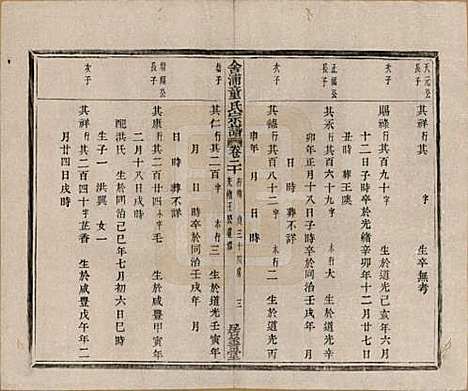 天元公
長子
其祥 行 字 生卒無考
次子
賜祿 行其百九十 生於道光己亥六月
十二日子時卒於光緒辛卯年十二月廿七日
丑時 葬王隩
正福公
長子
其永 行其百六十九 字 木行大 生於道光辛
卯年正月十八日子時卒 年 月 日 時
次子
其祿 行其百八十二 字 木行二 生於道光丙
申年 月 日 時
金浦童氏宗譜 卷二十
三
幼子
其仁 行其二百 木行三 生於道光壬寅年
月 日 時卒於同治壬戌年 月
日 時 葬不詳
長子
其康 行其二百廿四 字 生於咸豐甲寅年
二月十八日戌時
配洪氏 生於同治己巳年七月初六日巳時
生子一 洪興 女一
次子
其祥 行其二百四十 字芷香 生於咸豐戊午年二
月廿四日戌時